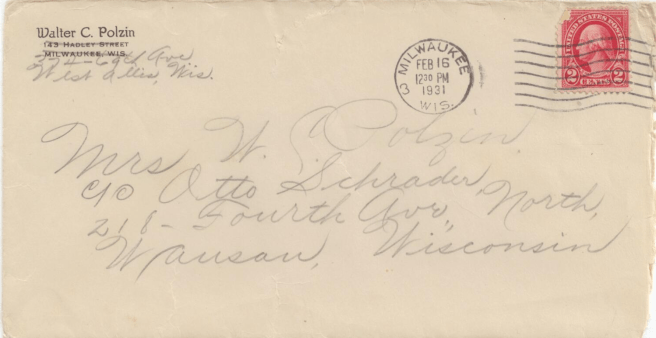 Walter C. Polzin
143 HADLEY STREET
MILWAUKEE, WIS.
334-69th Ave
West Allis, Wis.
MILWAUKEE
3
FEB 16
12 30 PM
1931
WIS.
UNITED STATES POSTAGE
2 CENTS 2
Mrs W. C. Polzin,
c/o Otto Schrader
218 - Fourth Ave, North,
Wausau, Wisconsin